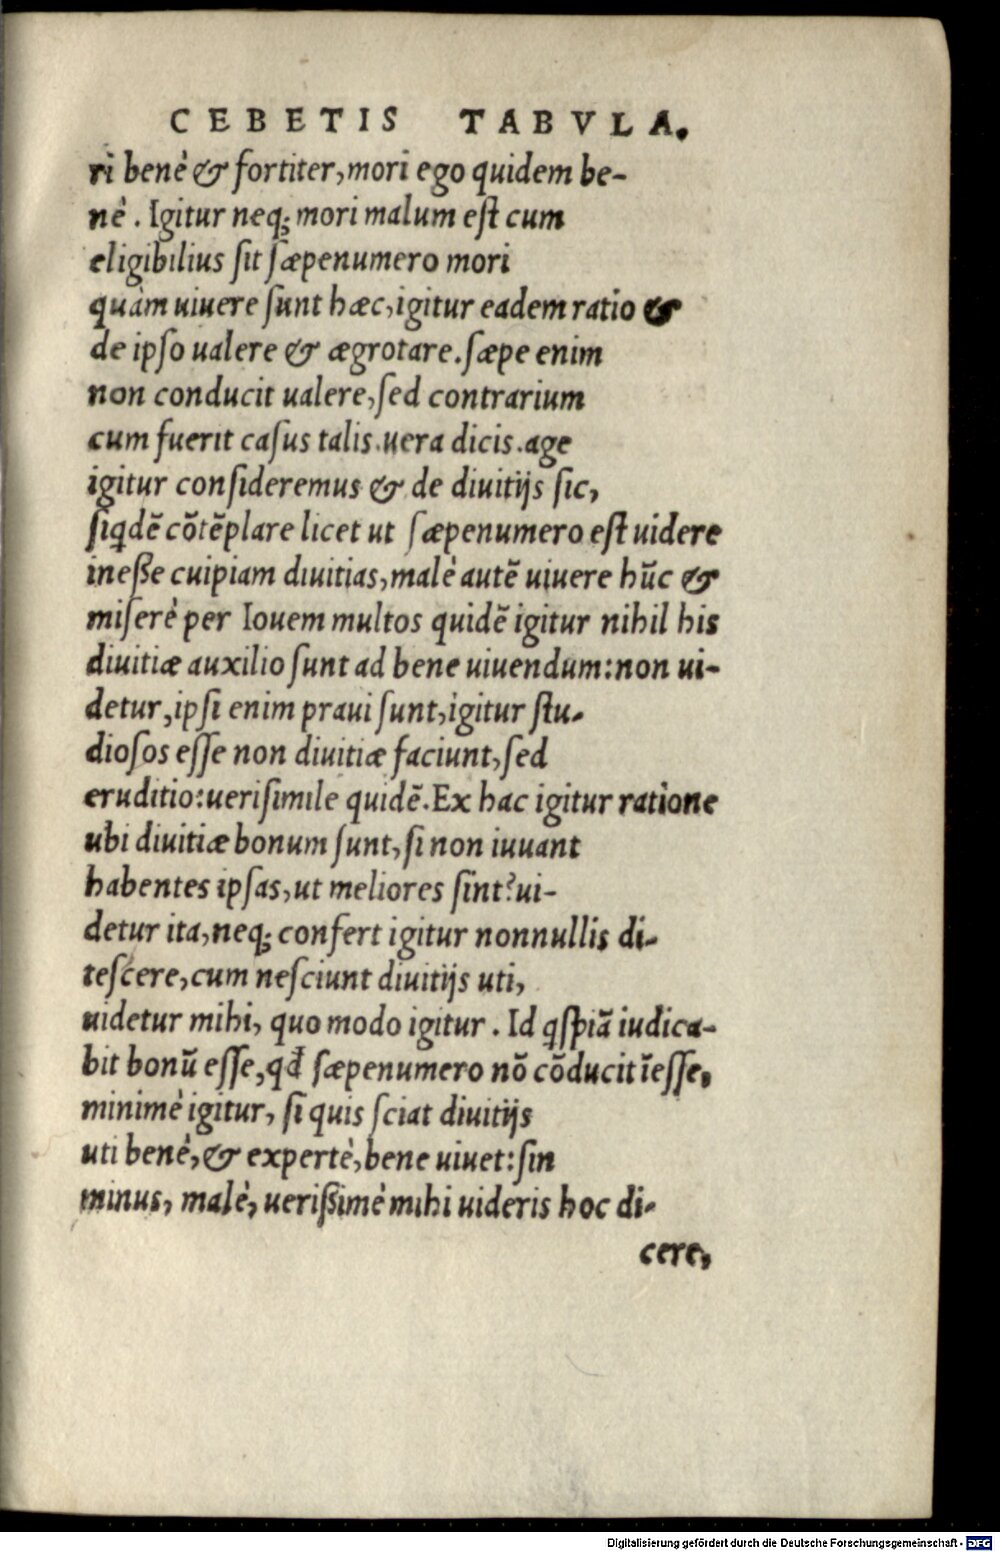 CEBETIS TABVLA.
ri benè & fortiter, mori ego quidem be-
nè. Igitur neq; mori malum eſt cum
eligibilius ſit ſæpenumero mori
quàm uiuere ſunt hæc, igitur eadem ratio &
de ipſo ualere & ægrotare. ſæpe enim
non conducit ualere, ſed contrarium
cum fuerit caſus talis. uera dicis. age
igitur conſideremus & de diuitijs ſic,
ſiqdē cōtēplare licet ut ſæpenumero eſt uidere
ineße cuipiam diuitias, malè autē uiuere hūc &
miſerè per Iouem multos quidē igitur nihil his
diuitiæ auxilio ſunt ad bene uiuendum: non ui-
detur, ipſi enim praui ſunt, igitur ſtu-
dioſos eſſe non diuitiæ faciunt, ſed
eruditio: ueriſimile quidē. Ex hac igitur ratione
ubi diuitiæ bonum ſunt, ſi non iuuant
habentes ipſas, ut meliores ſint? ui-
detur ita, neq; confert igitur nonnullis di-
teſcere, cum neſciunt diuitijs uti,
uidetur mihi, quo modo igitur. Id qſpiā iudica-
bit bonū eſſe, qđ ſæpenumero nō cōducit īeſſe,
minimè igitur, ſi quis ſciat diuitijs
uti benè, & expertè, bene uiuet: ſin
minus, malè, uerißimè mihi uideris hoc di-
cere,
Digitalisierung gefördert durch die Deutsche Forschungsgemeinschaft - DFG